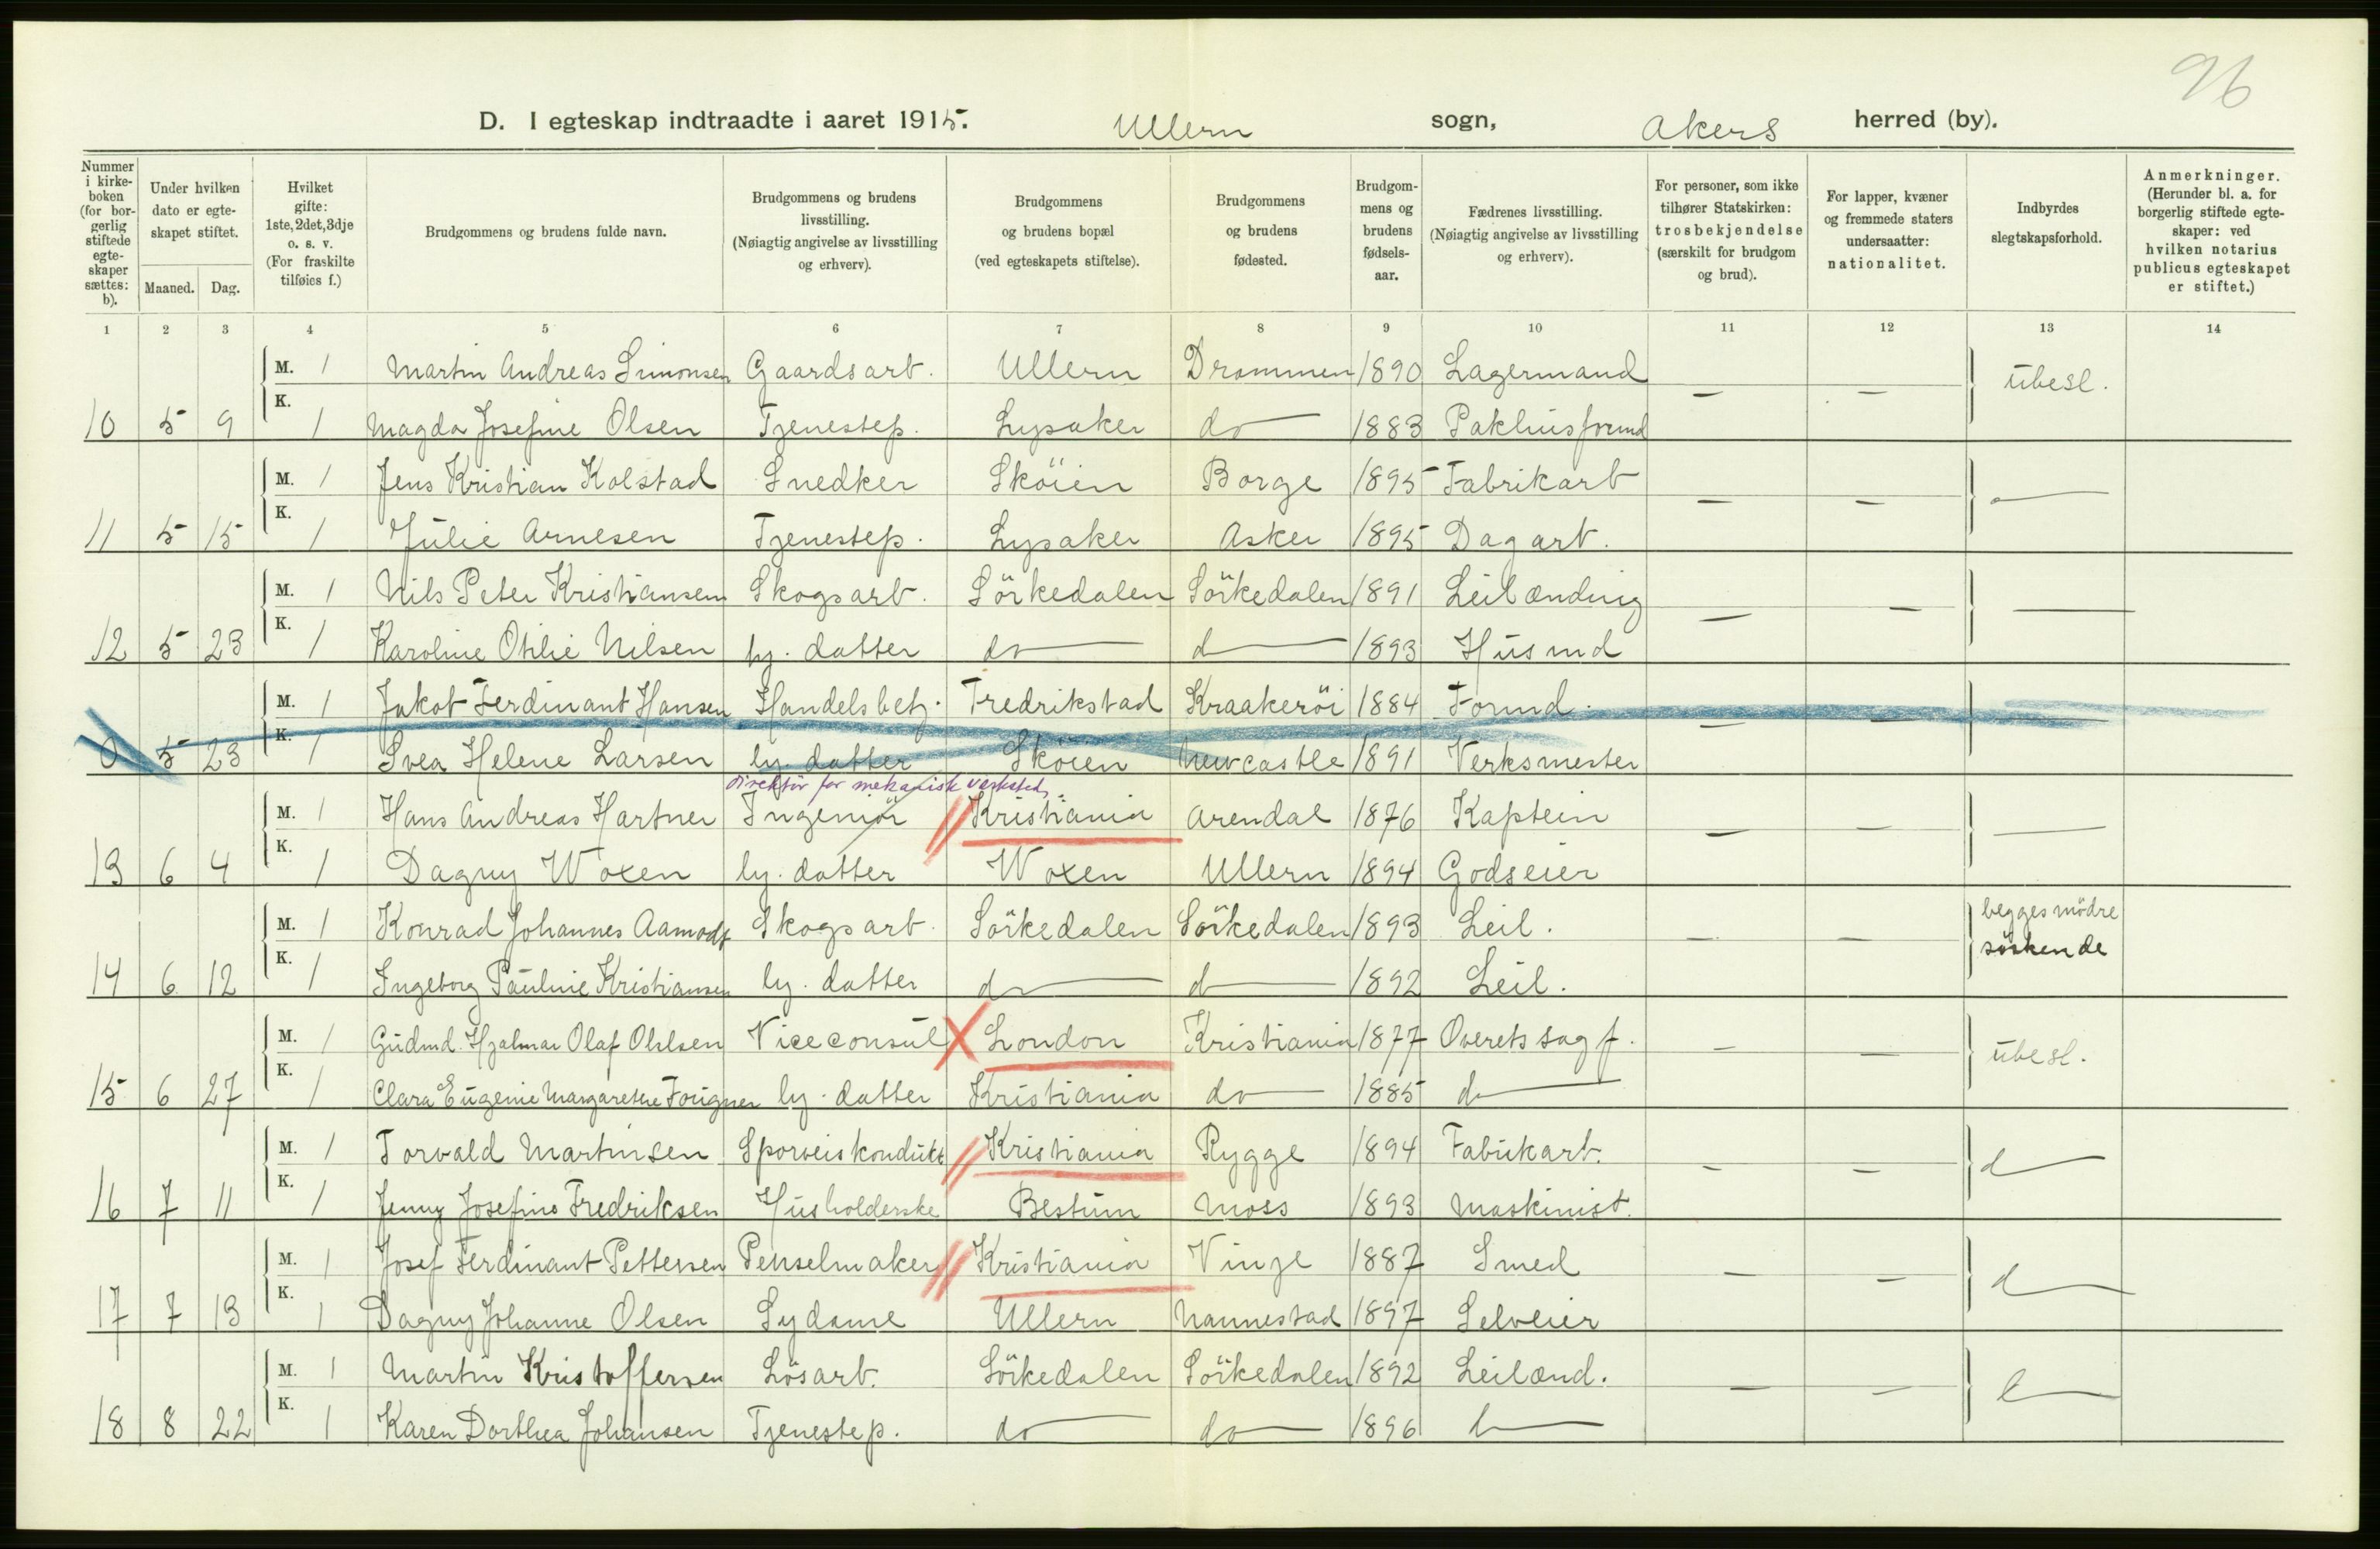 96
D. I egteskap indtraadte i aaret 1915. Ullern sogn, Akers herred (by).
Nummer i kirkeboken (for borgerlig stiftede egteskaper sættes: b).
Under hvilken dato er egteskapet stiftet.
Maaned. Dag.
Hvilket gifte: 1ste, 2det, 3dje o. s. v. (For fraskilte tilføies f.)
Brudgommens og brudens fulde navn.
Brudgommens og brudens livsstilling. (Nøiagtig angivelse av livsstilling og erhverv).
Brudgommens og brudens bopæl (ved egteskapets stiftelse).
Brudgommens og brudens fødested.
Brudgommens og brudens fødselsaar.
Fædrenes livsstilling. (Nøiagtig angivelse av livsstilling og erhverv).
For personer, som ikke tilhører Statskirken: trosbekjendelse (særskilt for brudgom og brud).
For lapper, kvæner og fremmede staters undersaatter: nationalitet.
Indbyrdes slegtskapsforhold.
Anmerkninger. (Herunder bl. a. for borgerlig stiftede egteskaper: ved hvilken notarius publicus egteskapet er stiftet.)
1 2 3 4 5 6 7 8 9 10 11 12 13 14
M. 1 Martin Andreas Simonsen Gaardsarb. Ullern Drammen 1890 Lagermand — — ubesl.
10 5 9 K. 1 Magda Josefine Olsen Tjenestep. Lysaker do 1883 Pakhusformd
M. 1 Jens Kristian Kolstad Snedker Sköien Borge 1895 Fabrikarb — — —
11 5 15 K. 1 Julie Arnesen Tjenestep. Lysaker Asker 1895 Dagarb.
M. 1 Nils Peter Kristiansen Skogsarb. Sörkedalen Sörkedalen 1891 Leilænding — — —
12 5 23 K. 1 Karoline Otilie Nilsen hj. datter do d 1893 Husmd
M. 1 Jakob Ferdinant Hansen Handelsbetj. Fredrikstad Kraakeröi 1884 Formd. — — —
0 5 23 K. 1 Svea Helene Larsen hj. datter Sköien Newcastle 1891 Verksmester
direktör for mekanisk verksted.
M. 1 Hans Andreas Hartner Ingeniör Kristiania Arendal 1876 Kaptein — — —
13 6 4 K. 1 Dagny Woxen hj. datter Woxen Ullern 1894 Godseier
M. 1 Konrad Johannes Aamodt Skogsarb. Sörkedalen Sörkedalen 1893 Leil. — — begges mödre söskende
14 6 12 K. 1 Ingeborg Pauline Kristiansen hj. datter do d 1892 Leil.
M. 1 Gudmd. Hjalmar Olaf Ohlsen Viceconsul London Kristiania 1877 Overetssagf. — — ubesl.
15 6 27 K. 1 Clara Eugenie Margarethe Fougner hj. datter Kristiania do 1885 d
M. 1 Torvald Martinsen Sporveiskondukt Kristiania Rygge 1894 Fabrikarb. — — d
16 7 11 K. 1 Jenny Josefine Fredriksen Husholderske Bestum Moss 1893 Maskinist.
M. 1 Josef Ferdinant Pettersen Penselmaker Kristiania Vinge 1887 Smed — — d
17 7 13 K. 1 Dagny Johanne Olsen Sydame Ullern Nannestad 1897 Selveier
M. 1 Martin Kristoffersen Lösarb. Sörkedalen Sörkedalen 1892 Leilænd. — —
18 8 22 K. 1 Karen Dorthea Johansen Tjenestep. do do 1896